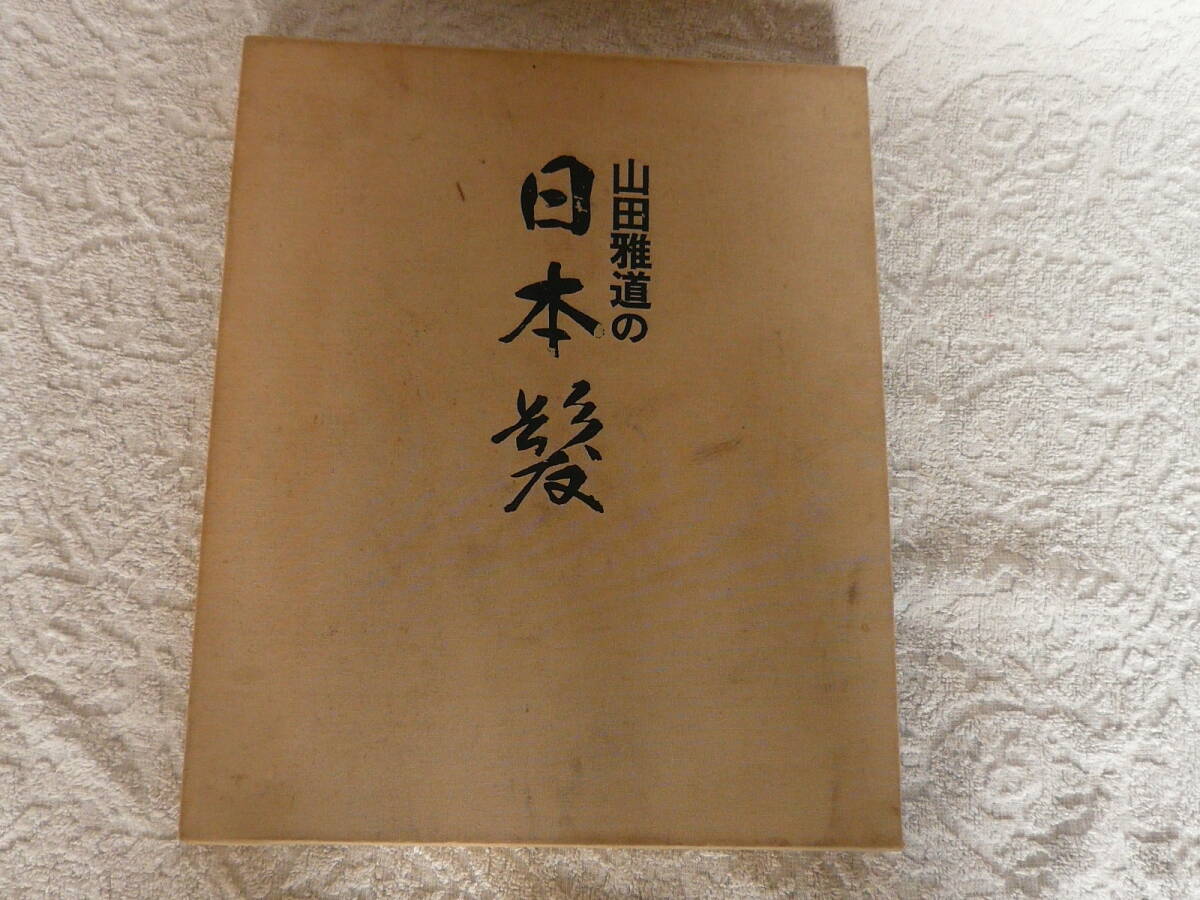 山田雅道の
日本髪